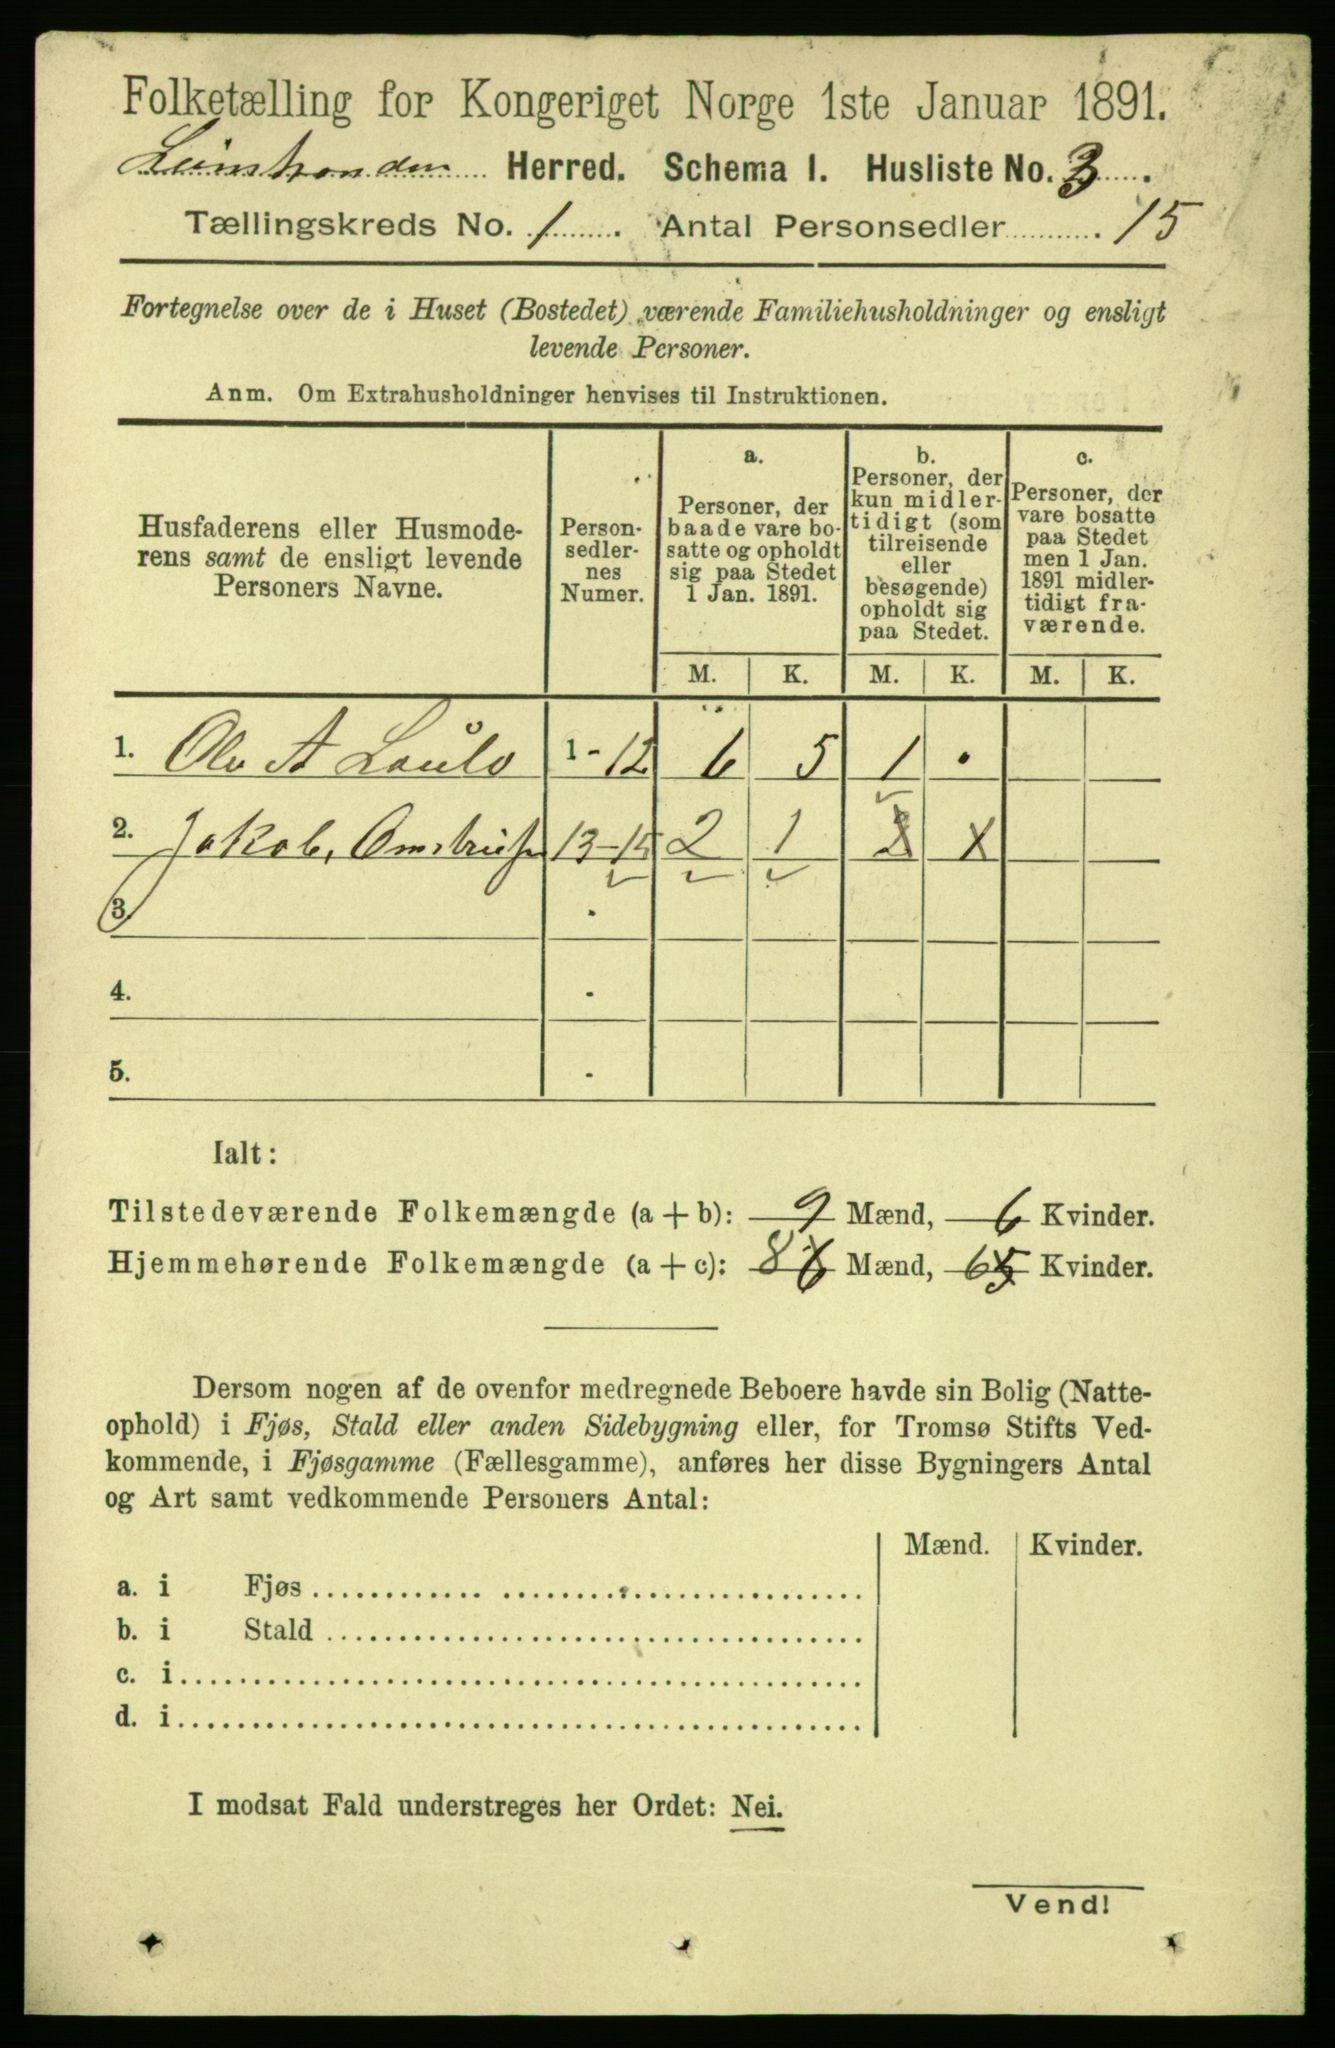 Folketælling for Kongeriget Norge 1ste Januar 1891.
Leinstranden Herred. Schema I. Husliste No. 3.
Tællingskreds No. 1. Antal Personsedler 15
Fortegnelse over de i Huset (Bostedet) værende Familiehusholdninger og ensligt
levende Personer.
Anm. Om Extrahusholdninger henvises til Instruktionen.
Husfaderens eller Husmode-
rens samt de ensligt levende
Personers Navne.
Person-
sedler-
nes
Numer.
a.
Personer, der
baade vare bo-
satte og opholdt
sig paa Stedet
1 Jan. 1891.
b.
Personer, der
kun midler-
tidigt (som
tilreisende
eller
besøgende)
opholdt sig
paa Stedet.
c.
Personer, der
vare bosatte
paa Stedet
men 1 Jan.
1891 midler-
tidigt fra-
værende.
M. K. M. K. M. K.
1. Ole A 1 - 12 6 5 1 .
2. Jakob, 13-15 2 1 X
3.
4.
5.
Ialt:
Tilstedeværende Folkemængde (a + b): 9 Mænd, 6 Kvinder.
Hjemmehørende Folkemængde (a + c): 8 6 Mænd, 6 5 Kvinder.
Dersom nogen af de ovenfor medregnede Beboere havde sin Bolig (Natte-
ophold) i Fjøs, Stald eller anden Sidebygning eller, for Tromsø Stifts Ved-
kommende, i Fjøsgamme (Fællesgamme), anføres her disse Bygningers Antal
og Art samt vedkommende Personers Antal:
Mænd. Kvinder.
a. i Fjøs
b. i Stald
c. i
d. i
I modsat Fald understreges her Ordet: Nei.
Vend!